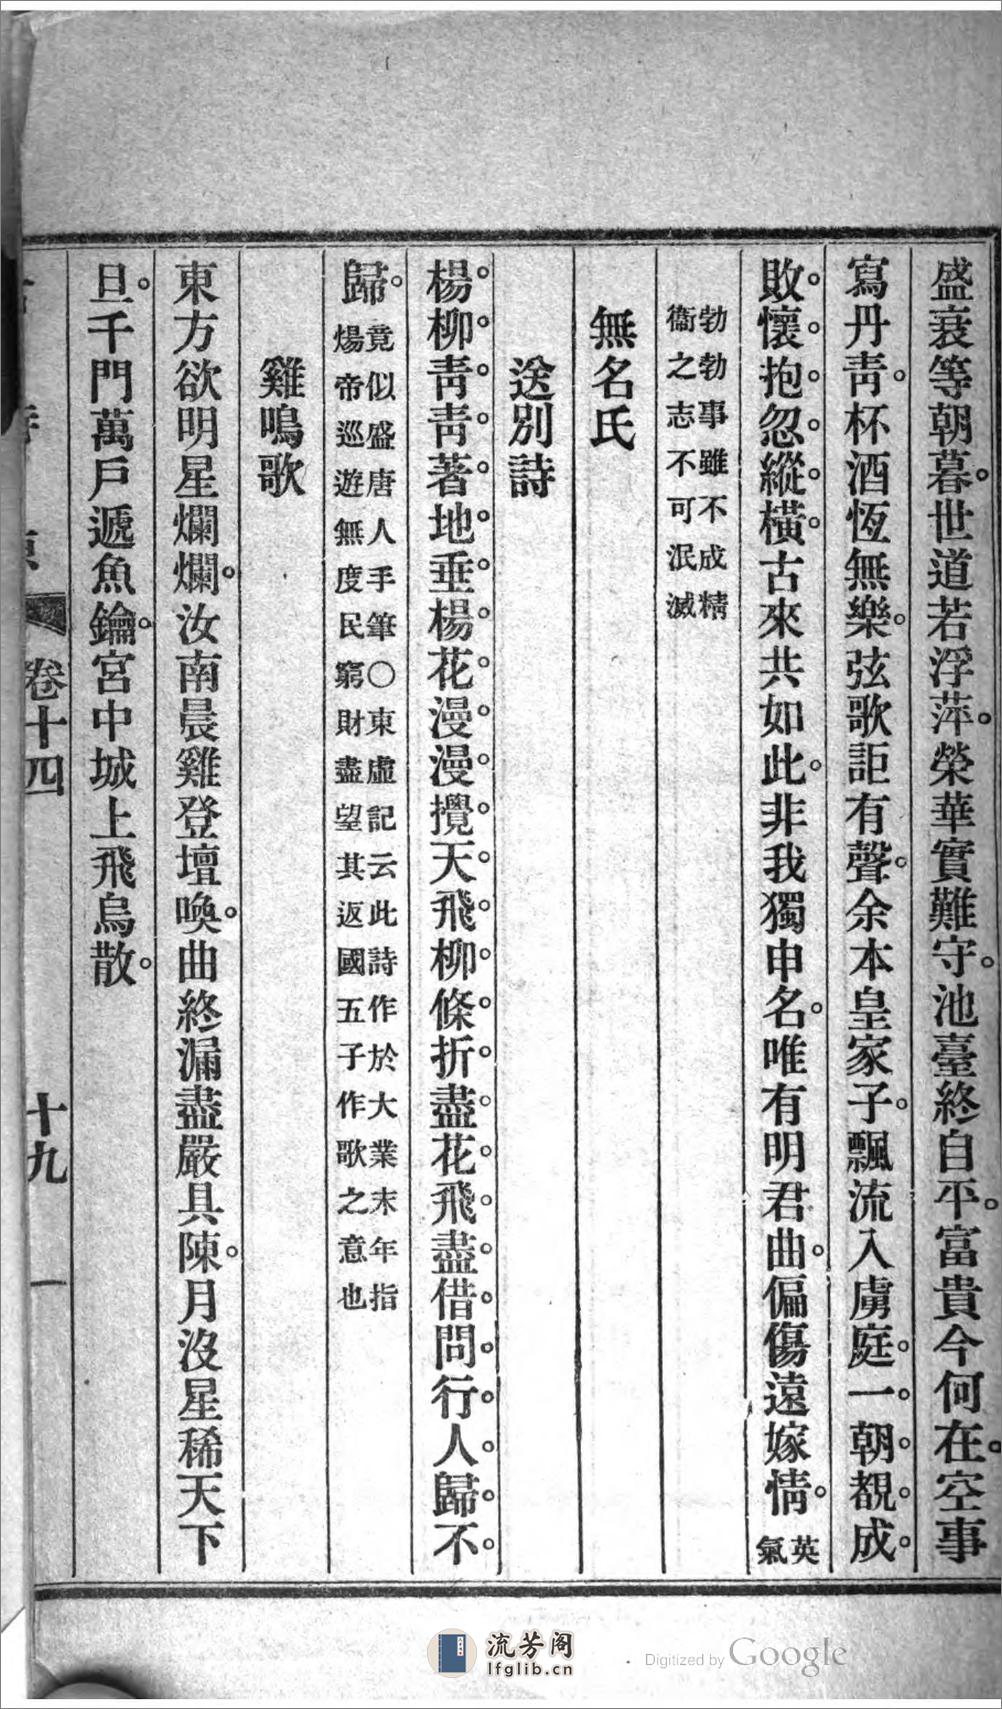 盛衰等朝暮。世道若浮萍。榮華實難守。池臺終自平。富貴今何在。空事
寫丹靑。杯酒恆無樂。弦歌詎有聲。余本皇家子。飄流入虜庭。一。朝。覩。成。
敗。懷。抱。忽。縱。橫。古來共如此。非我獨申名。唯有明君曲。偏傷遠嫁情。英
氣
勃勃事雖不成精
衞之志不可泯滅
無名氏
送別詩
楊。柳。靑。靑。著。地。垂。楊。花。漫。漫。攪。天。飛。柳。條。折。盡。花。飛。盡。借。問。行。人。歸。不。
歸。竟似盛唐人手筆○東虛記云此詩作於大業末年指
煬帝巡遊無度民窮財盡望其返國五子作歌之意也
雞鳴歌
東方欲明星爛爛。汝南晨雞登壇喚。曲終漏盡嚴具陳。月沒星稀天下
旦。千門萬戶遞魚鑰。宮中城上飛烏散。
卷十四
十九
流芳阁
lfglib.cn
Digitized by Google